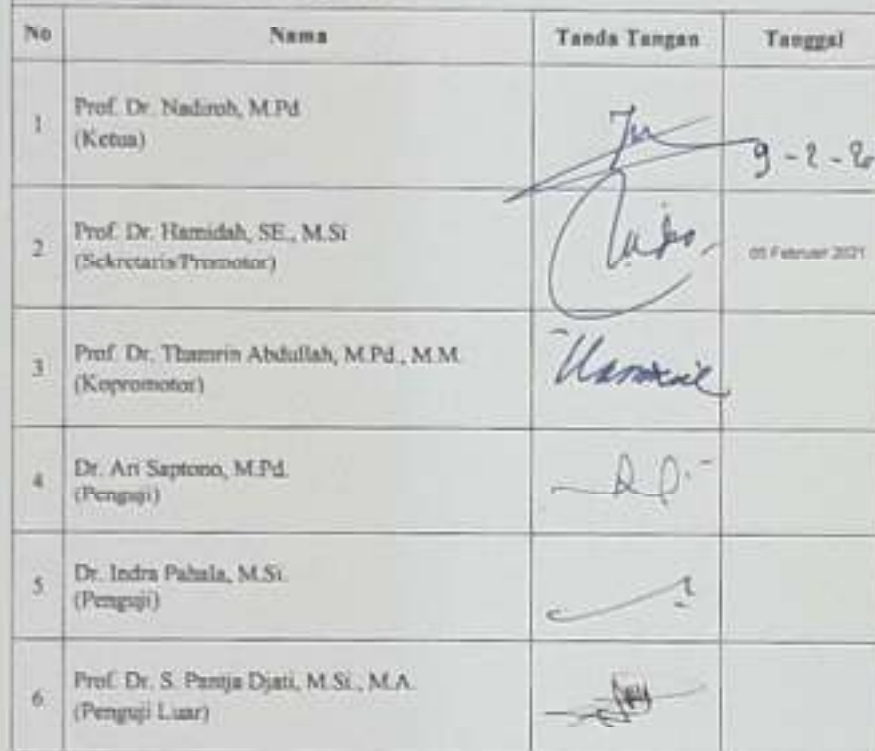 No Nama Tanda Tangan Tanggal
1 Prof. Dr. Nadiroh, M.Pd
(Ketua)
9 - 2 -
2 Prof. Dr. Hamidah, SE., M.Si
(Sekretaris/Promotor)
05 Februari 2021
3 Prof. Dr. Thamrin Abdullah, M.Pd., M.M.
(Kopromotor)
4 Dr. Ari Saptono, M.Pd.
(Penguji)
5 Dr. Indra Pahala, M.Si.
(Penguji)
6 Prof. Dr. S. Pantja Djati, M.Si., M.A.
(Penguji Luar)